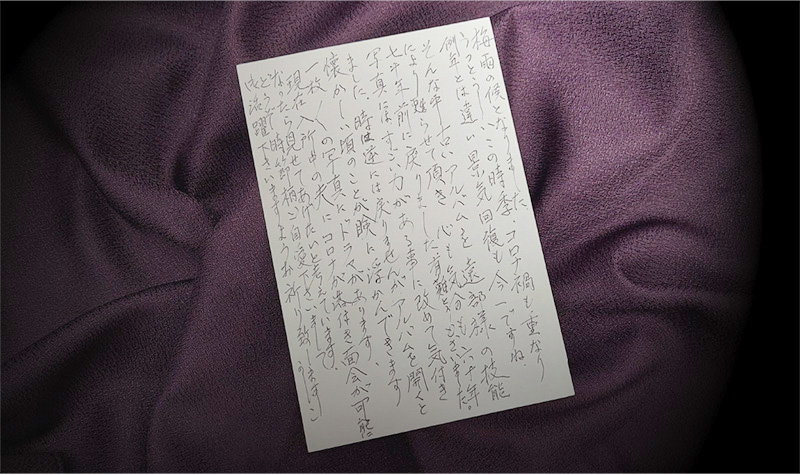 梅雨の候となりました。コロナ禍も重なり
うっとうしいこの時季、
例年とは違い景気回復も今一ですね。
そんな中古いアルバムを遠部様の技能
により甦らせて頂き心も気分も六十年、
七十年前に戻りました。有難うございました。
写真にはすごい力がある事に改めて気付き
ました。時は逆には戻りませんがアルバムを開くと
懐かしい頃のことが瞼に浮かんできます
一枚一枚の写真にドラマがあります。
現在入所中の夫にコロナが落付き面会が可能に
なったら見せてあげたいと考えています。
どうぞ時節柄ご自愛下さいまして
ご活躍下さいますようお祈り致します